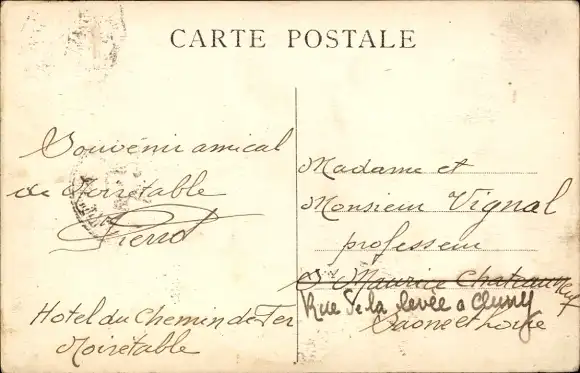 CARTE POSTALE
Souvenir amical
de Noirétable
Pierrot
Hotel du Chemin de Fer
Noirétable
Madame et
Monsieur Vignal
professeur
St Maurice Chateauneuf
Rue de la levée a Cluny
Saone et Loire